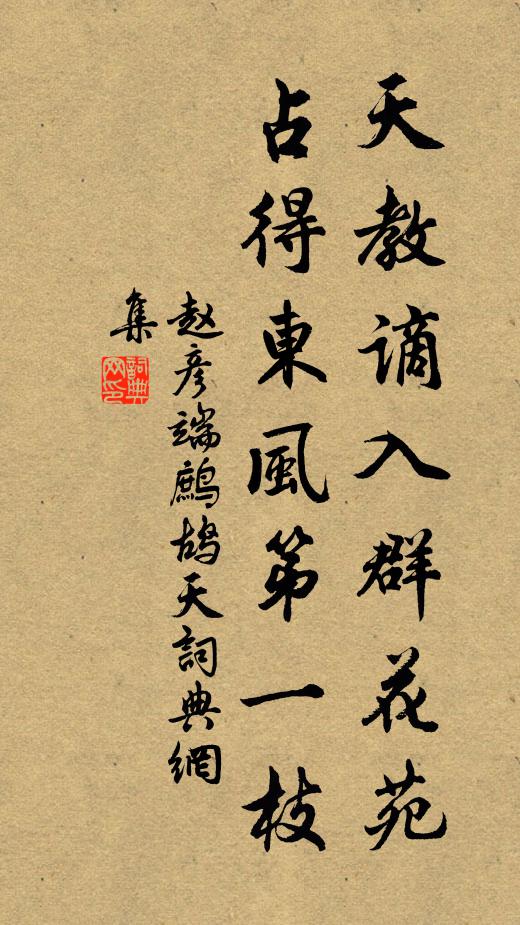 天教谪入群花苑
占得東風第一枝
赵彦端鹧鸪天詞典網
集
詞典網印